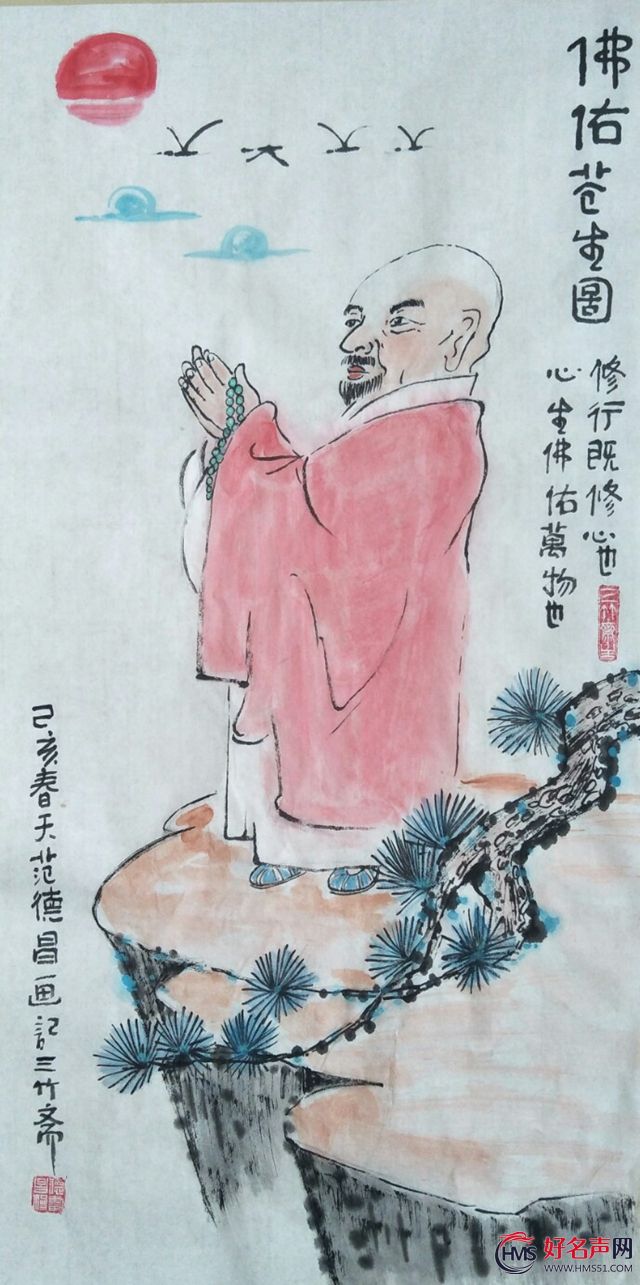 佛佑苍生圖
修行既修心也
心生佛佑萬物也
己亥春天范德昌画記三竹斋
HMS
好名声网
WWW.HMS51.COM